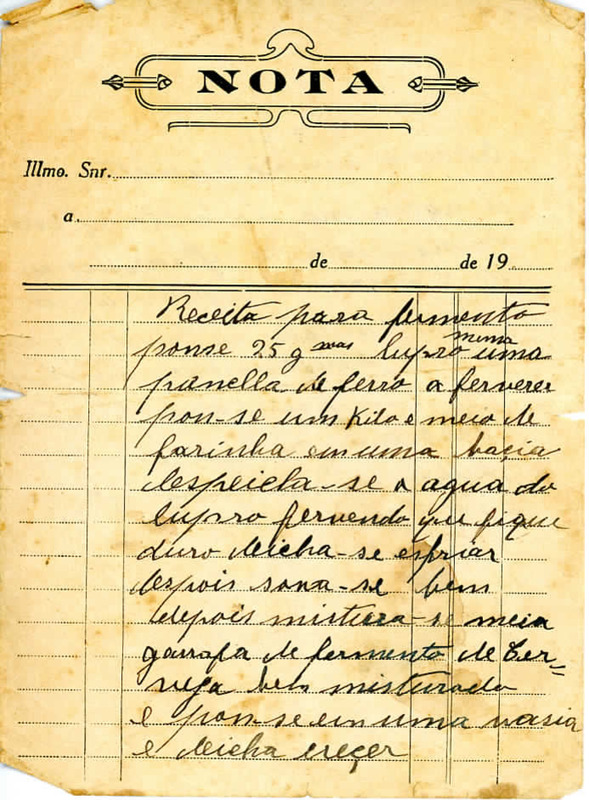 NOTA
Illmo. Snr.
a
de de 19
Receita para fermento
ponse 25 gmas lupro numa uma
panella de ferro a ferverer
pon-se um Kilo e meio de
farinha em uma bacia
despeicha-se a agua do
lupro fervendo que fique
duro deicha-se esfriar
despois sova-se bem
depois mistura-se meia
garrafa de fermento de Cer=
veja bem misturado
e pon-se em uma vasia
e deicha creçer